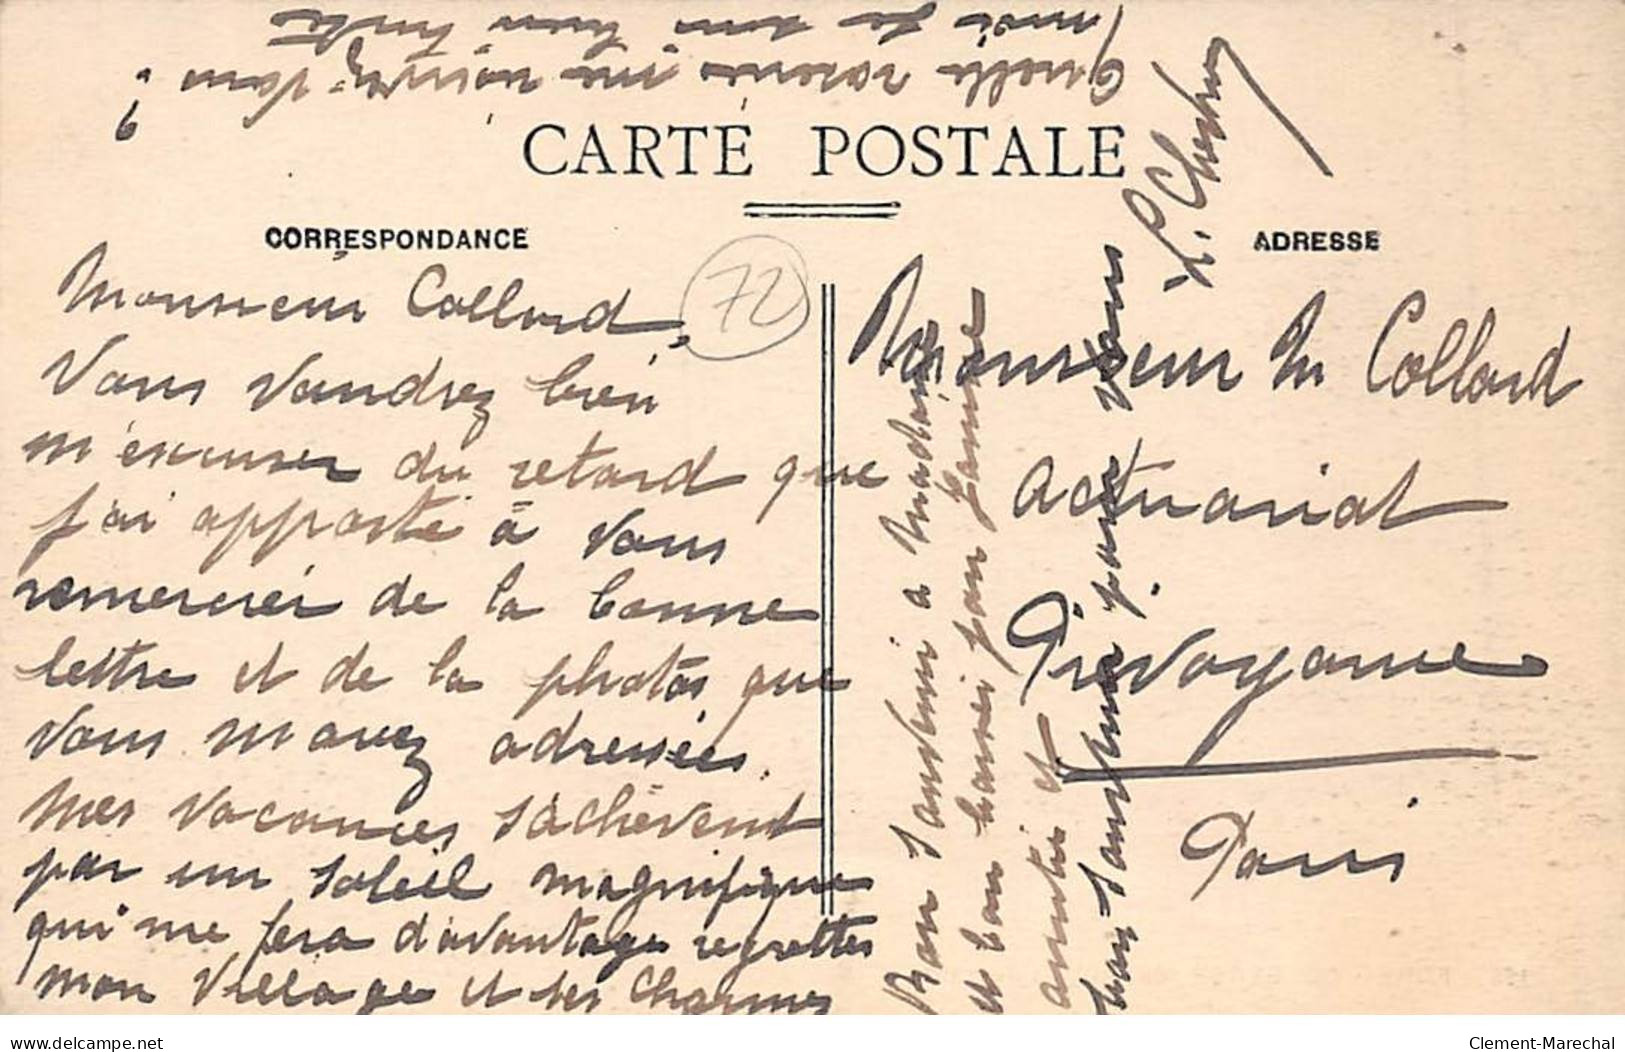 Quelle
moi je suis bien triste
?
CARTE POSTALE
CORRESPONDANCE
ADRESSE
72
Monsieur Collard,
Vous voudrez bien
m'excuser du retard que
j'ai apporté à vous
remercier de la bonne
lettre et de la photos que
vous m'avez adressées.
Mes vacances s'achèvent
par un soleil magnifique
qui me fera d'avantage regretter
mon village et ses charmes
Bon souvenir a Madame
et bon baiser pour
amitié et
bon souvenir pour vous
Monsieur M Collard
Actuariat
Prévoyance
Paris
delcampe.net
Clement-Marechal